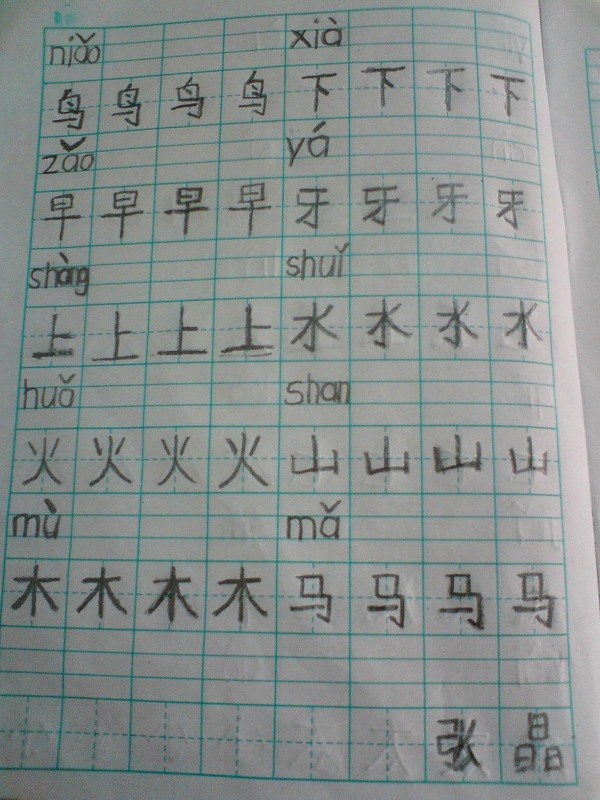 niǎo xià
鸟 鸟 鸟 鸟 下 下 下 下
zǎo yá
早 早 早 早 牙 牙 牙 牙
shàng shuǐ
上 上 上 上 水 水 水 水
huǒ shan
火 火 火 火 山 山 山 山
mù mǎ
木 木 木 木 马 马 马 马
张 晶